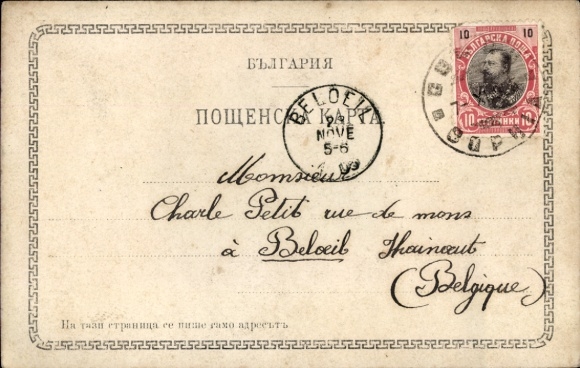 10 10
БЪЛГАРСКА ПОЩА
10 10
БЪЛГАРИЯ
ПОЩЕНСКА КАРТА
BELOEIL
23
NOVE
5-6
Monsieur
Charle Petit rue de mons
à Belœil Hainaut
(Belgique)
На тази страница се пише само адресътъ